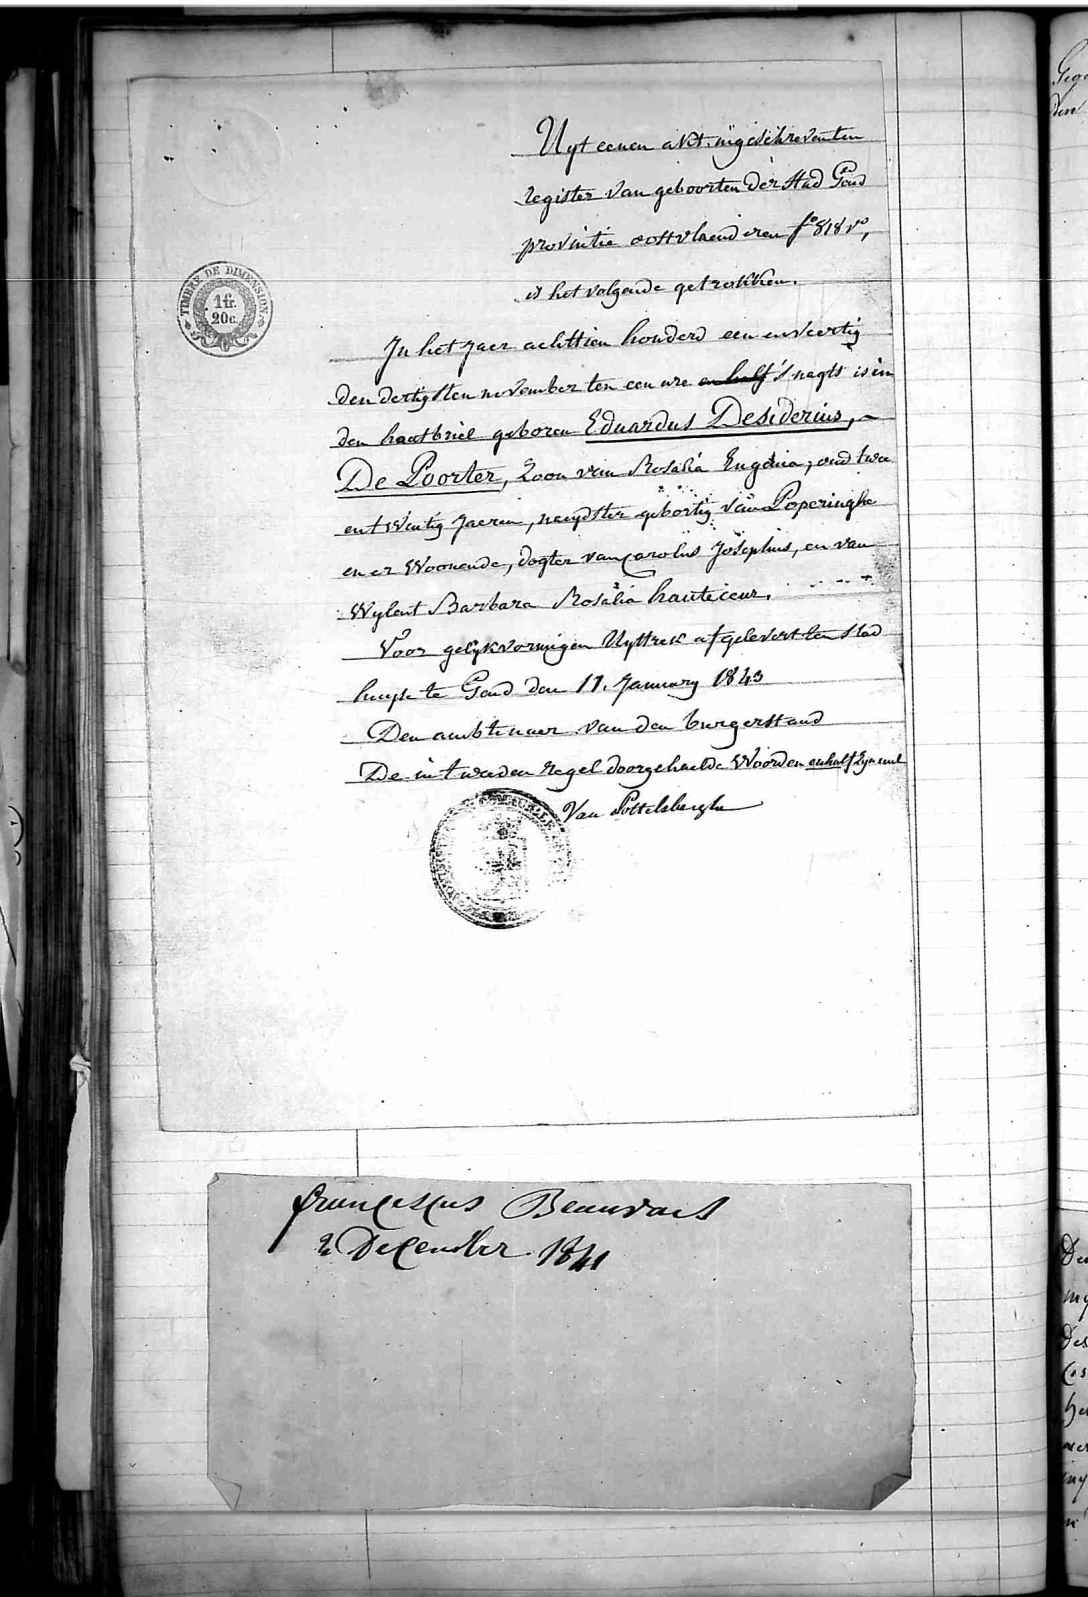 Uyt eenen akt ingeschreven ten
register van geboorten der stad Gend
provintie oostvlaenderen fo 818 vo,
is het volgende getrokken.
TIMBRE DE DIMENSION
1 fr.
20c.
In het jaer achttien honderd een en veertig
den dertigsten november ten een ure en half 's nagts is in
den haesbriel geboren Eduardus Desiderius,
De Poorter, Zoon van Rosalia Eugenia, oud twee
entwintig jaeren, naeydster geboortig van Poperinghe
en er Woonende, dogter van Carolus Josephus, en van
Wylent Barbara Rosalia hauticeur.
Voor gelykvormigen Uyttrek afgelevert ten stad
huyse te Gend den 11. January 1843
Den ambtenaer van den burgerstand
De in t weeden regel doorgehaelde Woorden en half zyn nul
Van Pottelsberghe
franciscus Beauvais
2 December 1841